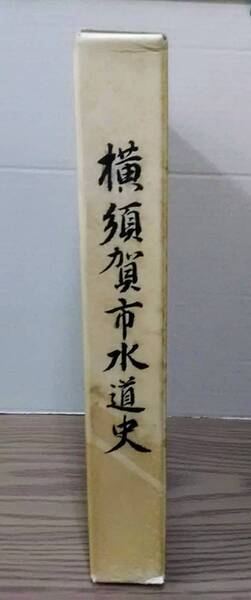 横須賀市水道史